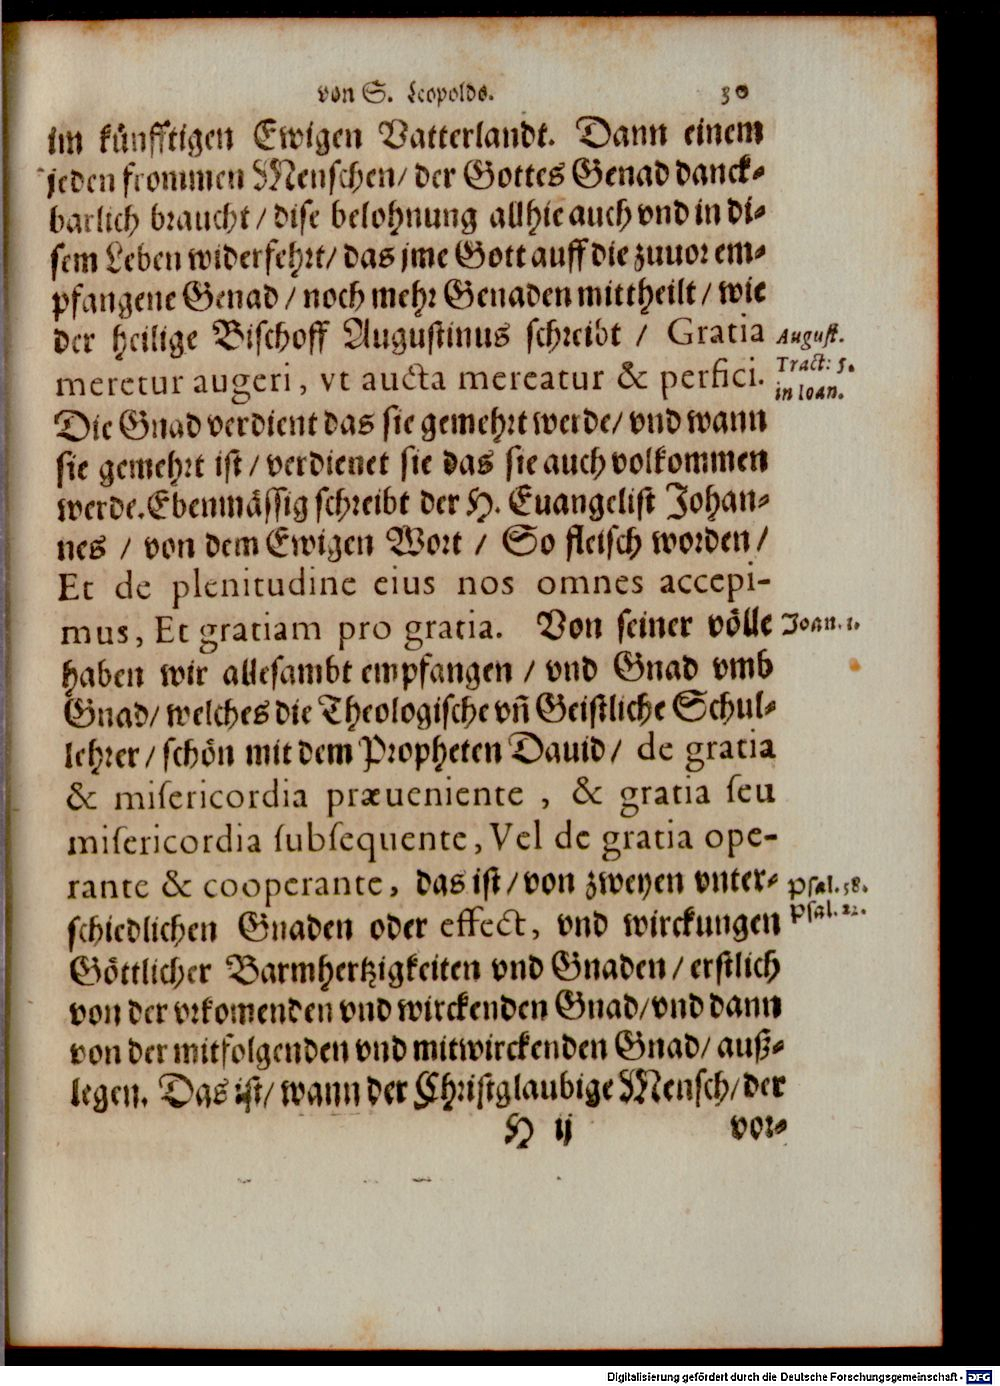 von S. Leopolds. 30
im künfftigen Ewigen Vatterlandt. Dann einem
jeden frommen Menschen/ der Gottes Genad danck-
barlich braucht / dise belohnung allhie auch vnd in di-
sem Leben widerfehrt/ das jme Gott auff die zuuor em-
pfangene Genad / noch mehr Genaden mittheilt / wie
der heilige Bischoff Augustinus schreibt / Gratia
August.
meretur augeri, vt aucta mereatur & perfici.
Tract: 5.
in Ioan.
Die Gnad verdient das sie gemehrt werde/ vnd wann
sie gemehrt ist / verdienet sie das sie auch volkommen
werde. Ebenmässig schreibt der H. Euangelist Johan-
nes / von dem Ewigen Wort / So fleisch worden /
Et de plenitudine eius nos omnes accepi-
mus, Et gratiam pro gratia. Von seiner völle
Ioan. 1.
haben wir allesambt empfangen / vnd Gnad vmb
Gnad/ welches die Theologische vñ Geistliche Schul-
lehrer / schön mit dem Propheten Dauid / de gratia
& miſericordia præueniente , & gratia ſeu
miſericordia ſubſequente, Vel de gratia ope-
rante & cooperante, das ist / von zweyen vnter-
Psal. 58.
schiedlichen Gnaden oder effect, vnd wirckungen
Psal. 22.
Göttlicher Barmhertzigkeiten vnd Gnaden / erstlich
von der vrkomenden vnd wirckenden Gnad/ vnd dann
von der mitfolgenden vnd mitwirckenden Gnad/ auß-
legen. Das ist/ wann der Christglaubige Mensch/ der
H ij vor-
Digitalisierung gefördert durch die Deutsche Forschungsgemeinschaft - DFG